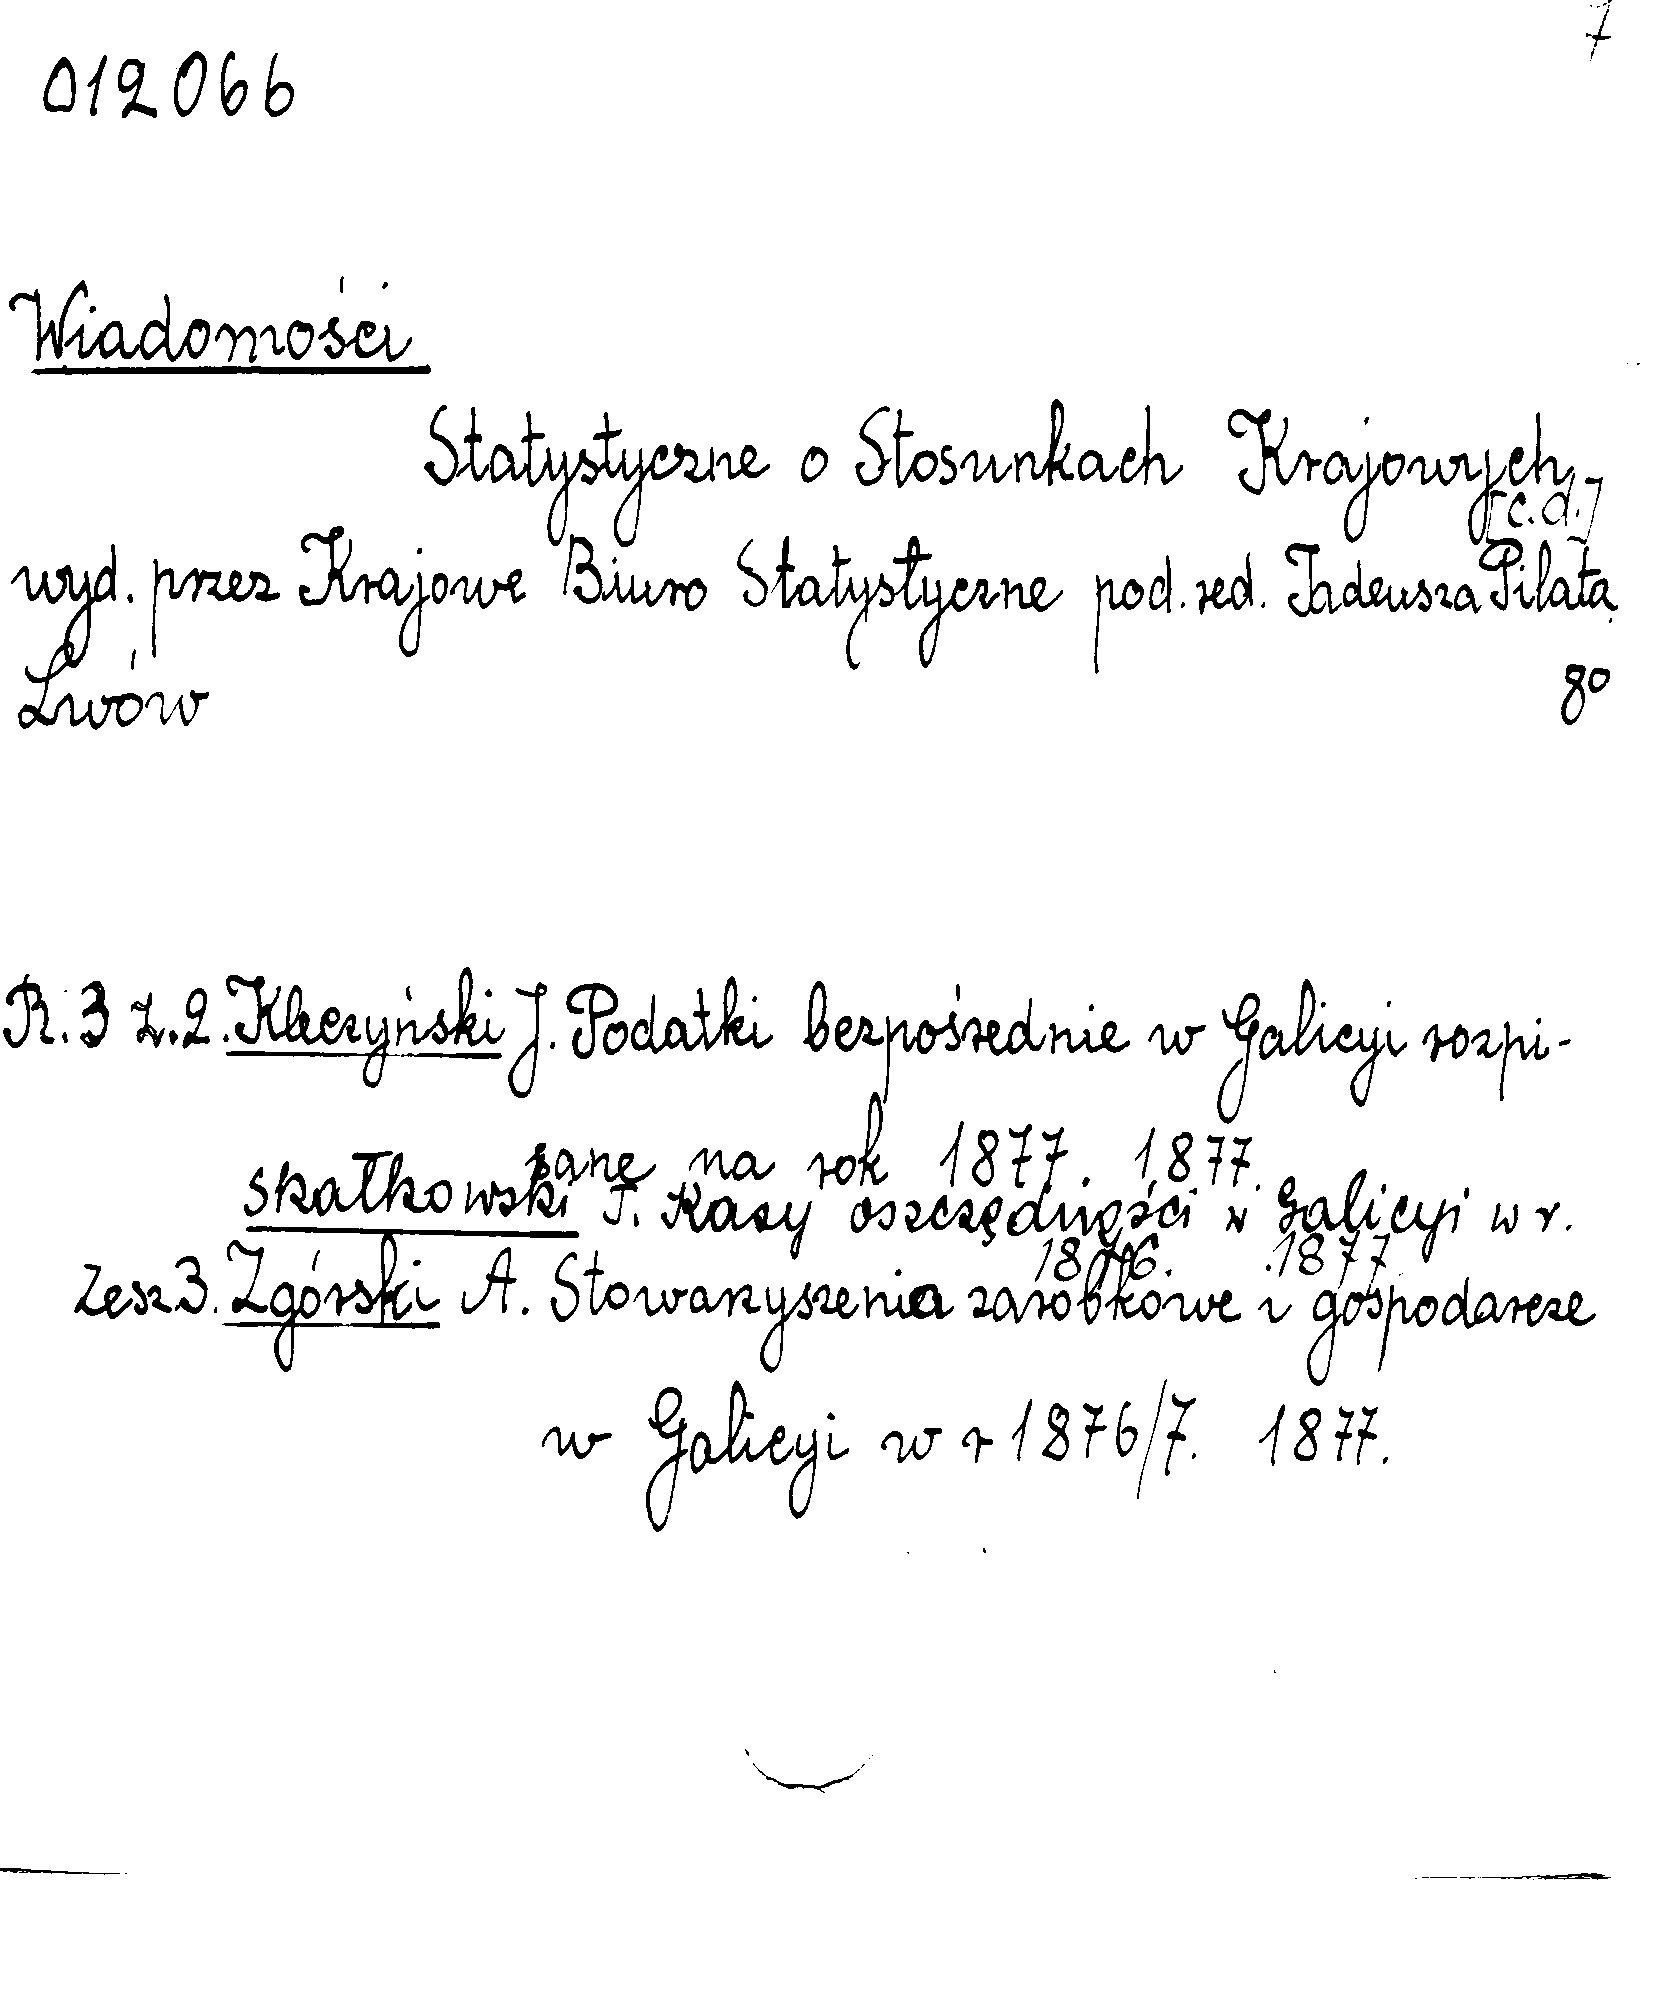 7
012066
Wiadomości
Statystyczne o Stosunkach Krajowych
[c.d.]
wyd. przez Krajowe Biuro Statystyczne pod. red. Tadeusza Piłata
Lwów 8º
R. 3 Z. 2. Kleczyński J. Podatki bezpośrednie w Galicyi rozpi-
sane na rok 1877. 1877.
Skałkowski T. Kasy oszczędności w Galicyi w r.
1876. 1877
Zesz 3. Zgórski A. Stowarzyszenia zarobkowe i gospodarcze
w Galicyi w r 1876/7. 1877.